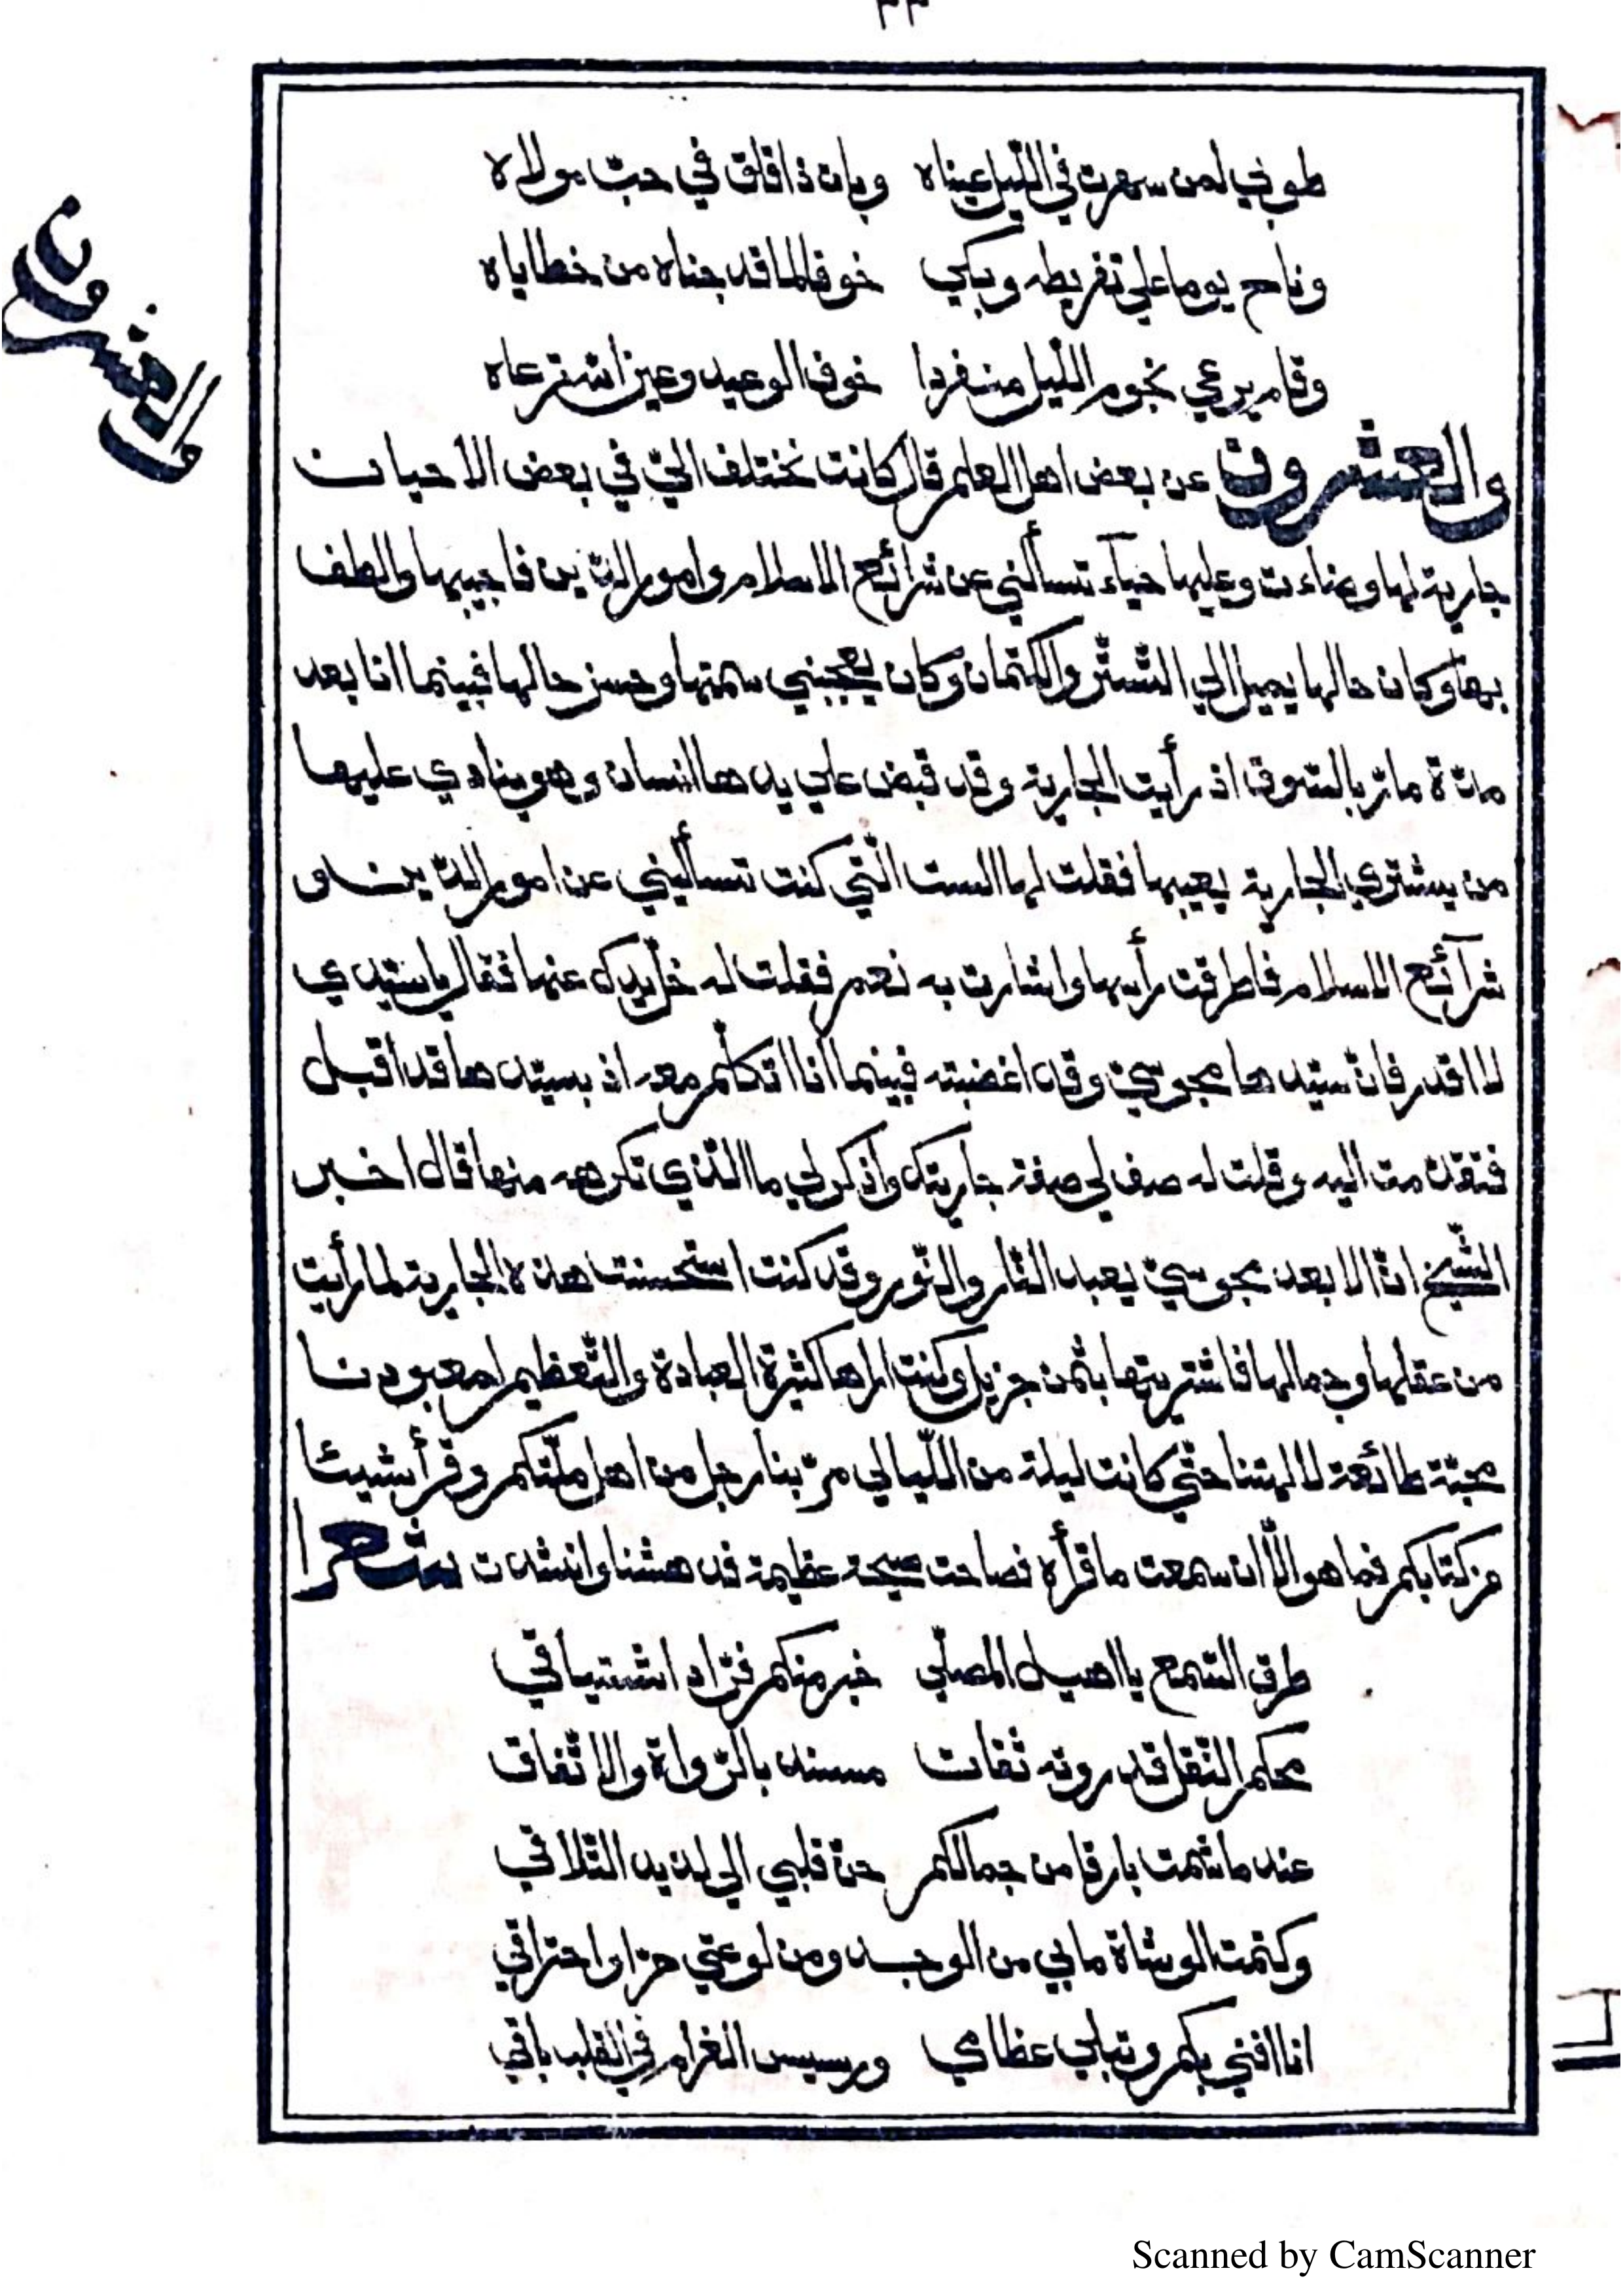 ٣٣
طوبي لمن سهرت في اللّيل عيناه وبات ذا قلق في حبّ مولاه
وناح يوما علي تفريطه وبكي خوفا لما قد جناه من خطاياه
وقام يرعي نجوم اللّيل منفردا خوف الوعيد وعين اللّه ترعاه
والعشرون
والعشرون عن بعض اهل العلم قال كانت تختلف اليّ في بعض الاحيان
جارية لها وضاءت وعليها حياء تسألني عن شرائع الاسلام وامور الدّين فاجيبها والطف
بها وكان حالها يميل الي التّستّر والكتمان وكان يعجبني سمتها وحسن حالها فبينما انا بعد
مدّة مارّ بالسّوق اذ رأيت الجارية وقد قبض علي يدها انسان وهو ينادي عليها
من يشتري الجارية بعيبها فقلت لها الست الّتي كنت تسأليني عن امور الدّين و
شرآئع الاسلام فاطرقت رأسها واشارت به نعم فقلت له خلّ يدك عنها فقال يا سيّدي
لا اقدر فانّ سيّدها مجوسيّ وقد اغضبته فبينما انا اتكلّم معه اذ بسيّدها قد اقبل
فتقدّمت اليه وقلت له صف لي صفة جاريتك واذكر لي ما الّذي تكرهه منها قال اخبر
الشّيخ انّ الابعد مجوسيّ يعبد النّار والنّور وقد كنت استحسنت هذه الجارية لما رأيت
من عقلها وجمالها فاشتريتها بثمن جزيل وكنت اراها كثيرة العبادة والتّعظيم لمعبودنا
محبّة طائعة لالهتنا حتّي كانت ليلة من اللّيالي مرّ بنا رجل من اهل ملّتكم وقرأ شيئا
من كتابكم فما هو الّا ان سمعت ما قرأه فصاحت صيحة عظيمة فدهشنا وانشدت شعرا
طرق السّمع يا اهيل المصلّي خبر منكم فزاد اشتياقي
محكم النّقل قد روته ثقات مسند بالرّواة والاتّفاق
عند ما شمت بارقا من جمالكم حنّ قلبي الي لذيذ التّلاقي
وكتمت الوشاة ما بي من الوجد ومن لوعتي حرّا واحتراقي
انا افني بكم وتبلي عظامي ورسيس الغرام في القلب باقي
Scanned by CamScanner